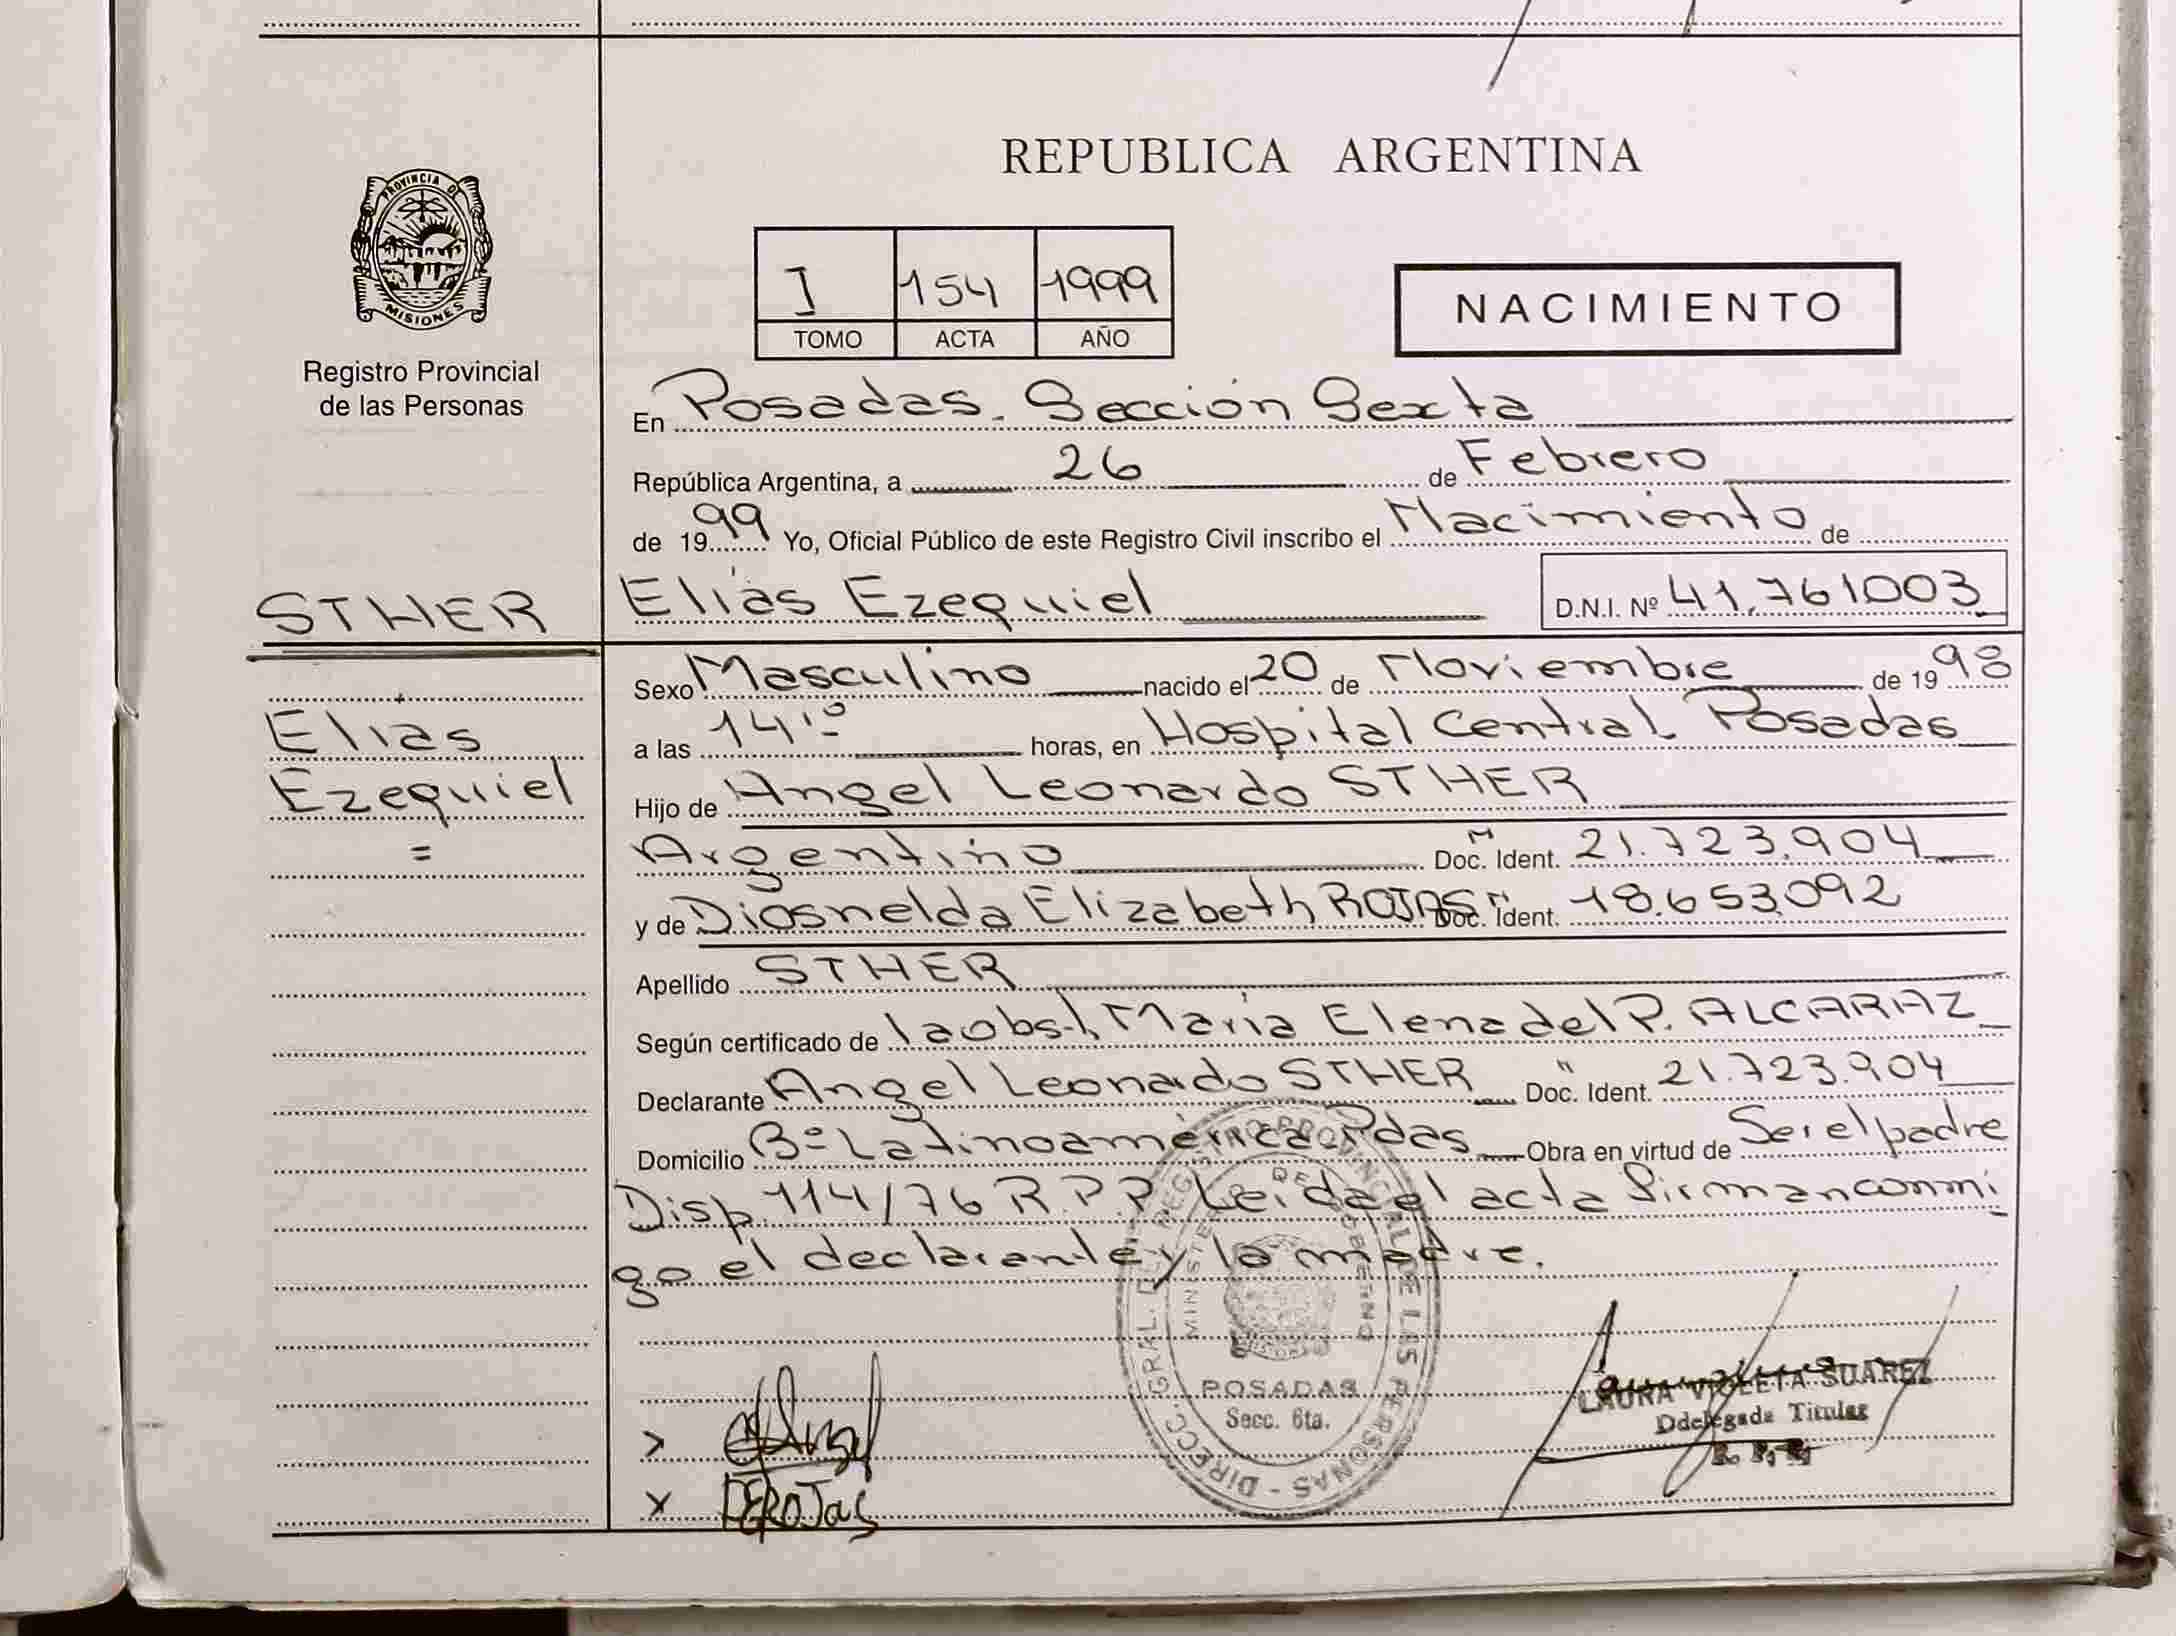 PROVINCIA DE
MISIONES
Registro Provincial
de las Personas
REPUBLICA ARGENTINA
I 154 1999
TOMO ACTA AÑO
NACIMIENTO
En Posadas. Sección Sexta
República Argentina, a 26 de Febrero
de 1999 Yo, Oficial Público de este Registro Civil inscribo el Nacimiento de
STHER Elías Ezequiel D.N.I. Nº 41.761003
Sexo Masculino nacido el 20 de Noviembre de 1998
Elias a las 14,º horas, en Hospital Central Posadas
Ezequiel Hijo de Angel Leonardo STHER
= Argentino Doc. Ident. M 21.723.904
y de Diosnelda Elizabeth ROJAS Doc. Ident. " 18.653.092
Apellido STHER
Según certificado de la obst, María Elena del P. ALCARAZ
Declarante Angel Leonardo STHER Doc. Ident. " 21.723.904
Domicilio Bº Latinoamérica Pdas Obra en virtud de Ser el padre
Disp. 114/76 R.P.P. Leída el acta firman conmi
go el declarante y la madre.
DIRECC. GRAL. DEL REGISTRO PROVINCIAL DE LAS PERSONAS -
MINISTERIO DE GOBIERNO
POSADAS
Secc. 6ta.
LAURA VIOLETA SUAREZ
Ddelegada Titular
R. P. P.
x Angel
x DEROJas